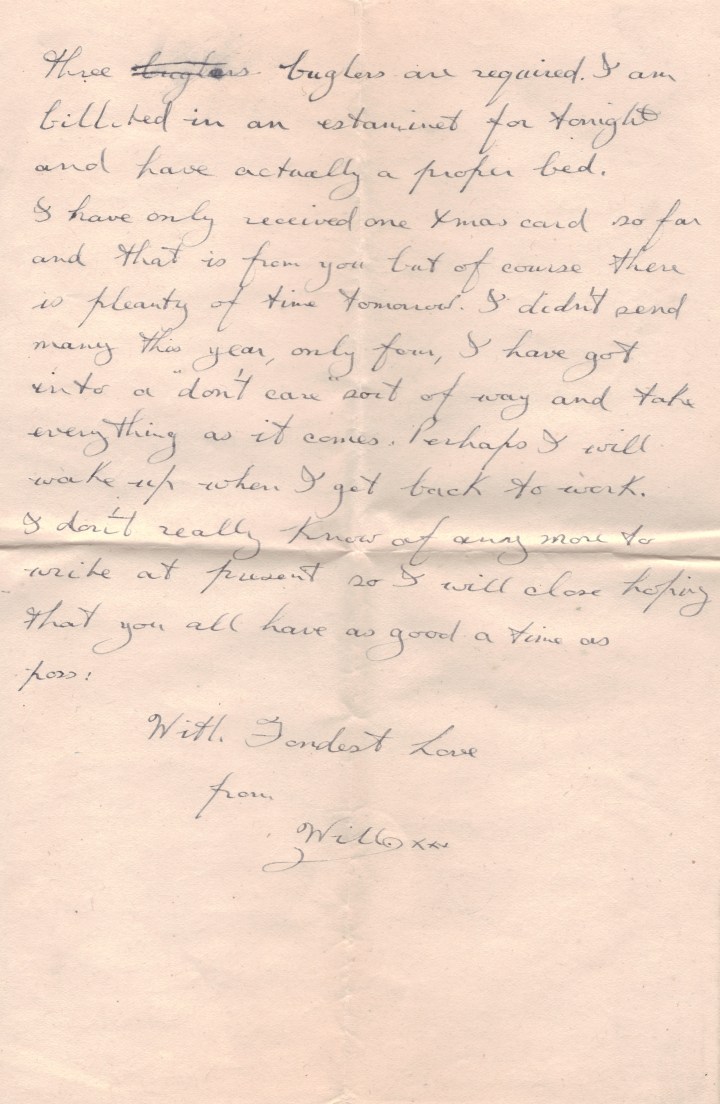 three buglers buglers are required. I am
billited in an estaminet for tonight
and have actually a proper bed.
I have only received one Xmas card so far
and that is from you but of course there
is pleanty of time tomorrow. I didn't send
many this year, only four, I have got
into a "don't care" sort of way and take
everything as it comes. Perhaps I will
wake up when I get back to work.
I don't really know of any more to
write at present so I will close hoping
that you all have as good a time as
poss:
With Fondest Love
from
Will xxx